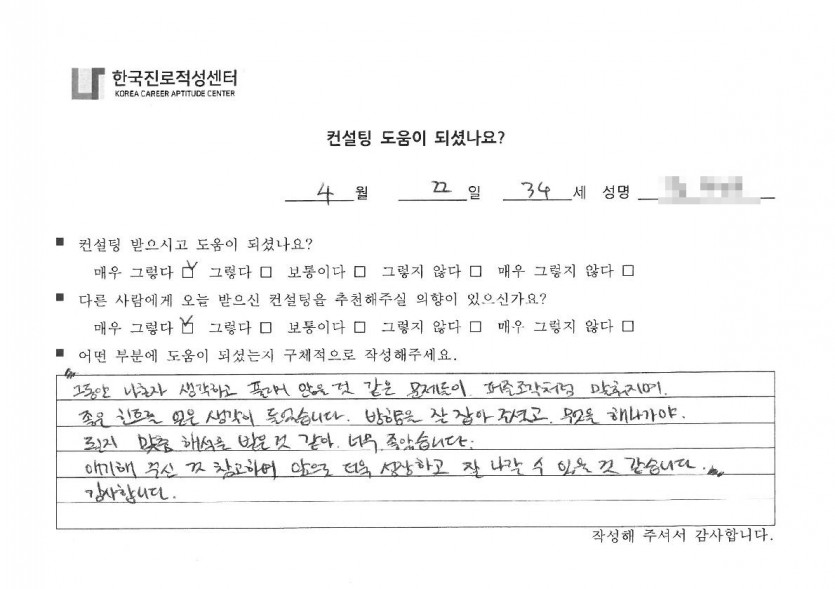 한국진로적성센터
KOREA CAREER APTITUDE CENTER
컨설팅 도움이 되셨나요?
4 월 22 일 34 세 성명
■ 컨설팅 받으시고 도움이 되셨나요?
매우 그렇다 ☑ 그렇다 □ 보통이다 □ 그렇지 않다 □ 매우 그렇지 않다 □
■ 다른 사람에게 오늘 받으신 컨설팅을 추천해주실 의향이 있으신가요?
매우 그렇다 ☑ 그렇다 □ 보통이다 □ 그렇지 않다 □ 매우 그렇지 않다 □
■ 어떤 부분에 도움이 되셨는지 구체적으로 작성해주세요.
그동안 나혼자 생각하고 풀래야 않을 것 같은 문제들이 퍼즐조각처럼 맞춰지며.
좋은 힌트를 얻은 생각이 들었습니다. 방향을 잘 잡아 주셨고, 무엇을 해나가야.
되는지 맞춤 해석을 받은 것 같아. 너무 좋았습니다.
얘기해 주신 것 참고하며 앞으로 더욱 성장하고 잘 나갈 수 있을 것 같습니다.
감사합니다.
작성해 주셔서 감사합니다.